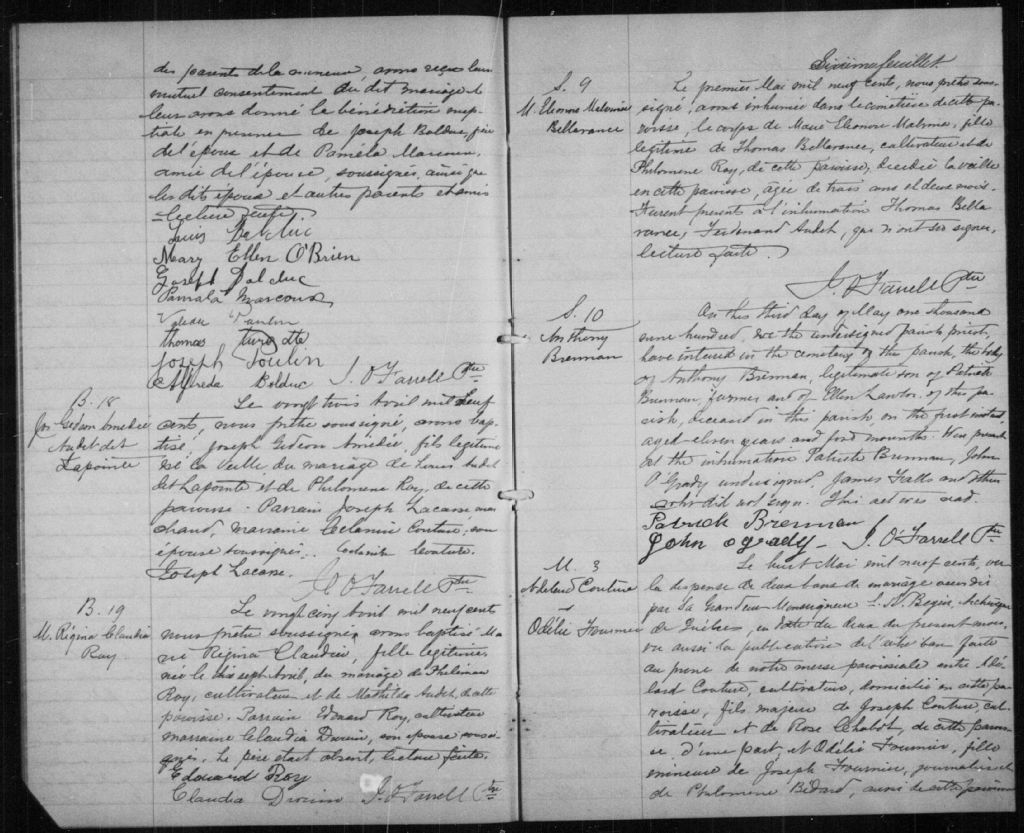 des parents de la mineure, avons reçu leur
mutuel consentement du dit mariage et
leur avons donné la bénédiction nup-
tiale en présence de Joseph Bolduc, père
de l'épouse et de Paméla Marcoux,
amie de l'épouse, soussignés, ainsi que
les dits époux et autres parents et amis
Lecture faite.
Louis Leclerc
Mary Ellen O'Brien
Joseph Bolduc
Pamala Marcoux
Poulin
thomas turgotte
Joseph Poulin
Alfreda Bolduc J. O'Farrell Ptre
B. 18
Jos Gédéon Amédée
Audet dit
Lapointe
Le vingt trois Avril mil neuf
cents, nous prêtre soussigné, avons bap-
tisé, Joseph Gédéon Amédée, fils légitime
né la veille du mariage de Louis Audet
dit Lapointe et de Philomène Roy, de cette
paroisse. Parrain Joseph Lacasse mar
chand, marraine Mélanie Couture, son
épouse soussignés. Mélanie Couture.
Joseph Lacasse.
J. O'Farrell Ptre
B. 19
M. Régina Claudia
Roy
Le vingt cinq Avril mil neuf cent
nous prêtre soussigné avons baptisé Ma
rie Régina Claudia, fille légitime,
née le dix sept Avril, du mariage de Philémon
Roy, cultivateur et de Mathilda Audet, de cette
paroisse. Parrain Edouard Roy, cultivateur
marraine Claudia Drouin, son épouse sous si-
gnés. Le père était absent, lecture faite.
Edouard Roy
Claudia Drouin J. O'Farrell Ptre
Sixième feuillet
S. 9
M. Eleonore Malvina
Bellavance
Le premier Mai mil neuf cents, nous prêtre sous
signé, avons inhumé dans le cimetière de cette pa
roisse, le corps de Marie Eleonore Malvina, fille
légitime de Thomas Bellavance, cultivateur et de
Philomène Roy, de cette paroisse, décédée la veille
en cette paroisse, âgée de trois ans et deux mois.
Furent présents à l'inhumation Thomas Bella
vance, Ferdinand Audet, qui n'ont su signer,
lecture faite.
J. O'Farrell Ptre
S. 10
Anthony
Brennan
On this third day of May one thousand
nine hundred, we the undersigned parish priest,
have interred in the cemetery of the parish, the body
of Anthony Brennan, legitimate son of Patrick
Brennan, farmer and of Ellen Lawlor, of this pa-
rish, deceased in this parish, on the first instant,
aged eleven years and four months. Were present
at the inhumation Patrick Brennan, John
O'Grady undersigned, James Falls and others
who did not sign. This act was read.
Patrick Brennan
John ogrady J. O'Farrell Ptre
M. 3
Adelard Couture
Odélie Fournier
Le huit Mai mil neuf cents, vu
la dispense de deux bans de mariage accordée
par Sa Grandeur Monseigneur L. N. Bégin, Archevêque
de Québec, en date du deux du présent mois,
vu aussi la publication de l'autre ban faite
au prône de notre messe paroissiale entre Adé
lard Couture, cultivateur, domicilié en cette pa-
roisse, fils majeur de Joseph Couture, cul-
tivateur et de Rose Chabot, de cette parois
se d'une part, et Odélie Fournier, fille
mineure de Joseph Fournier, journalier et
de Philomène Bédard, aussi de cette paroisse